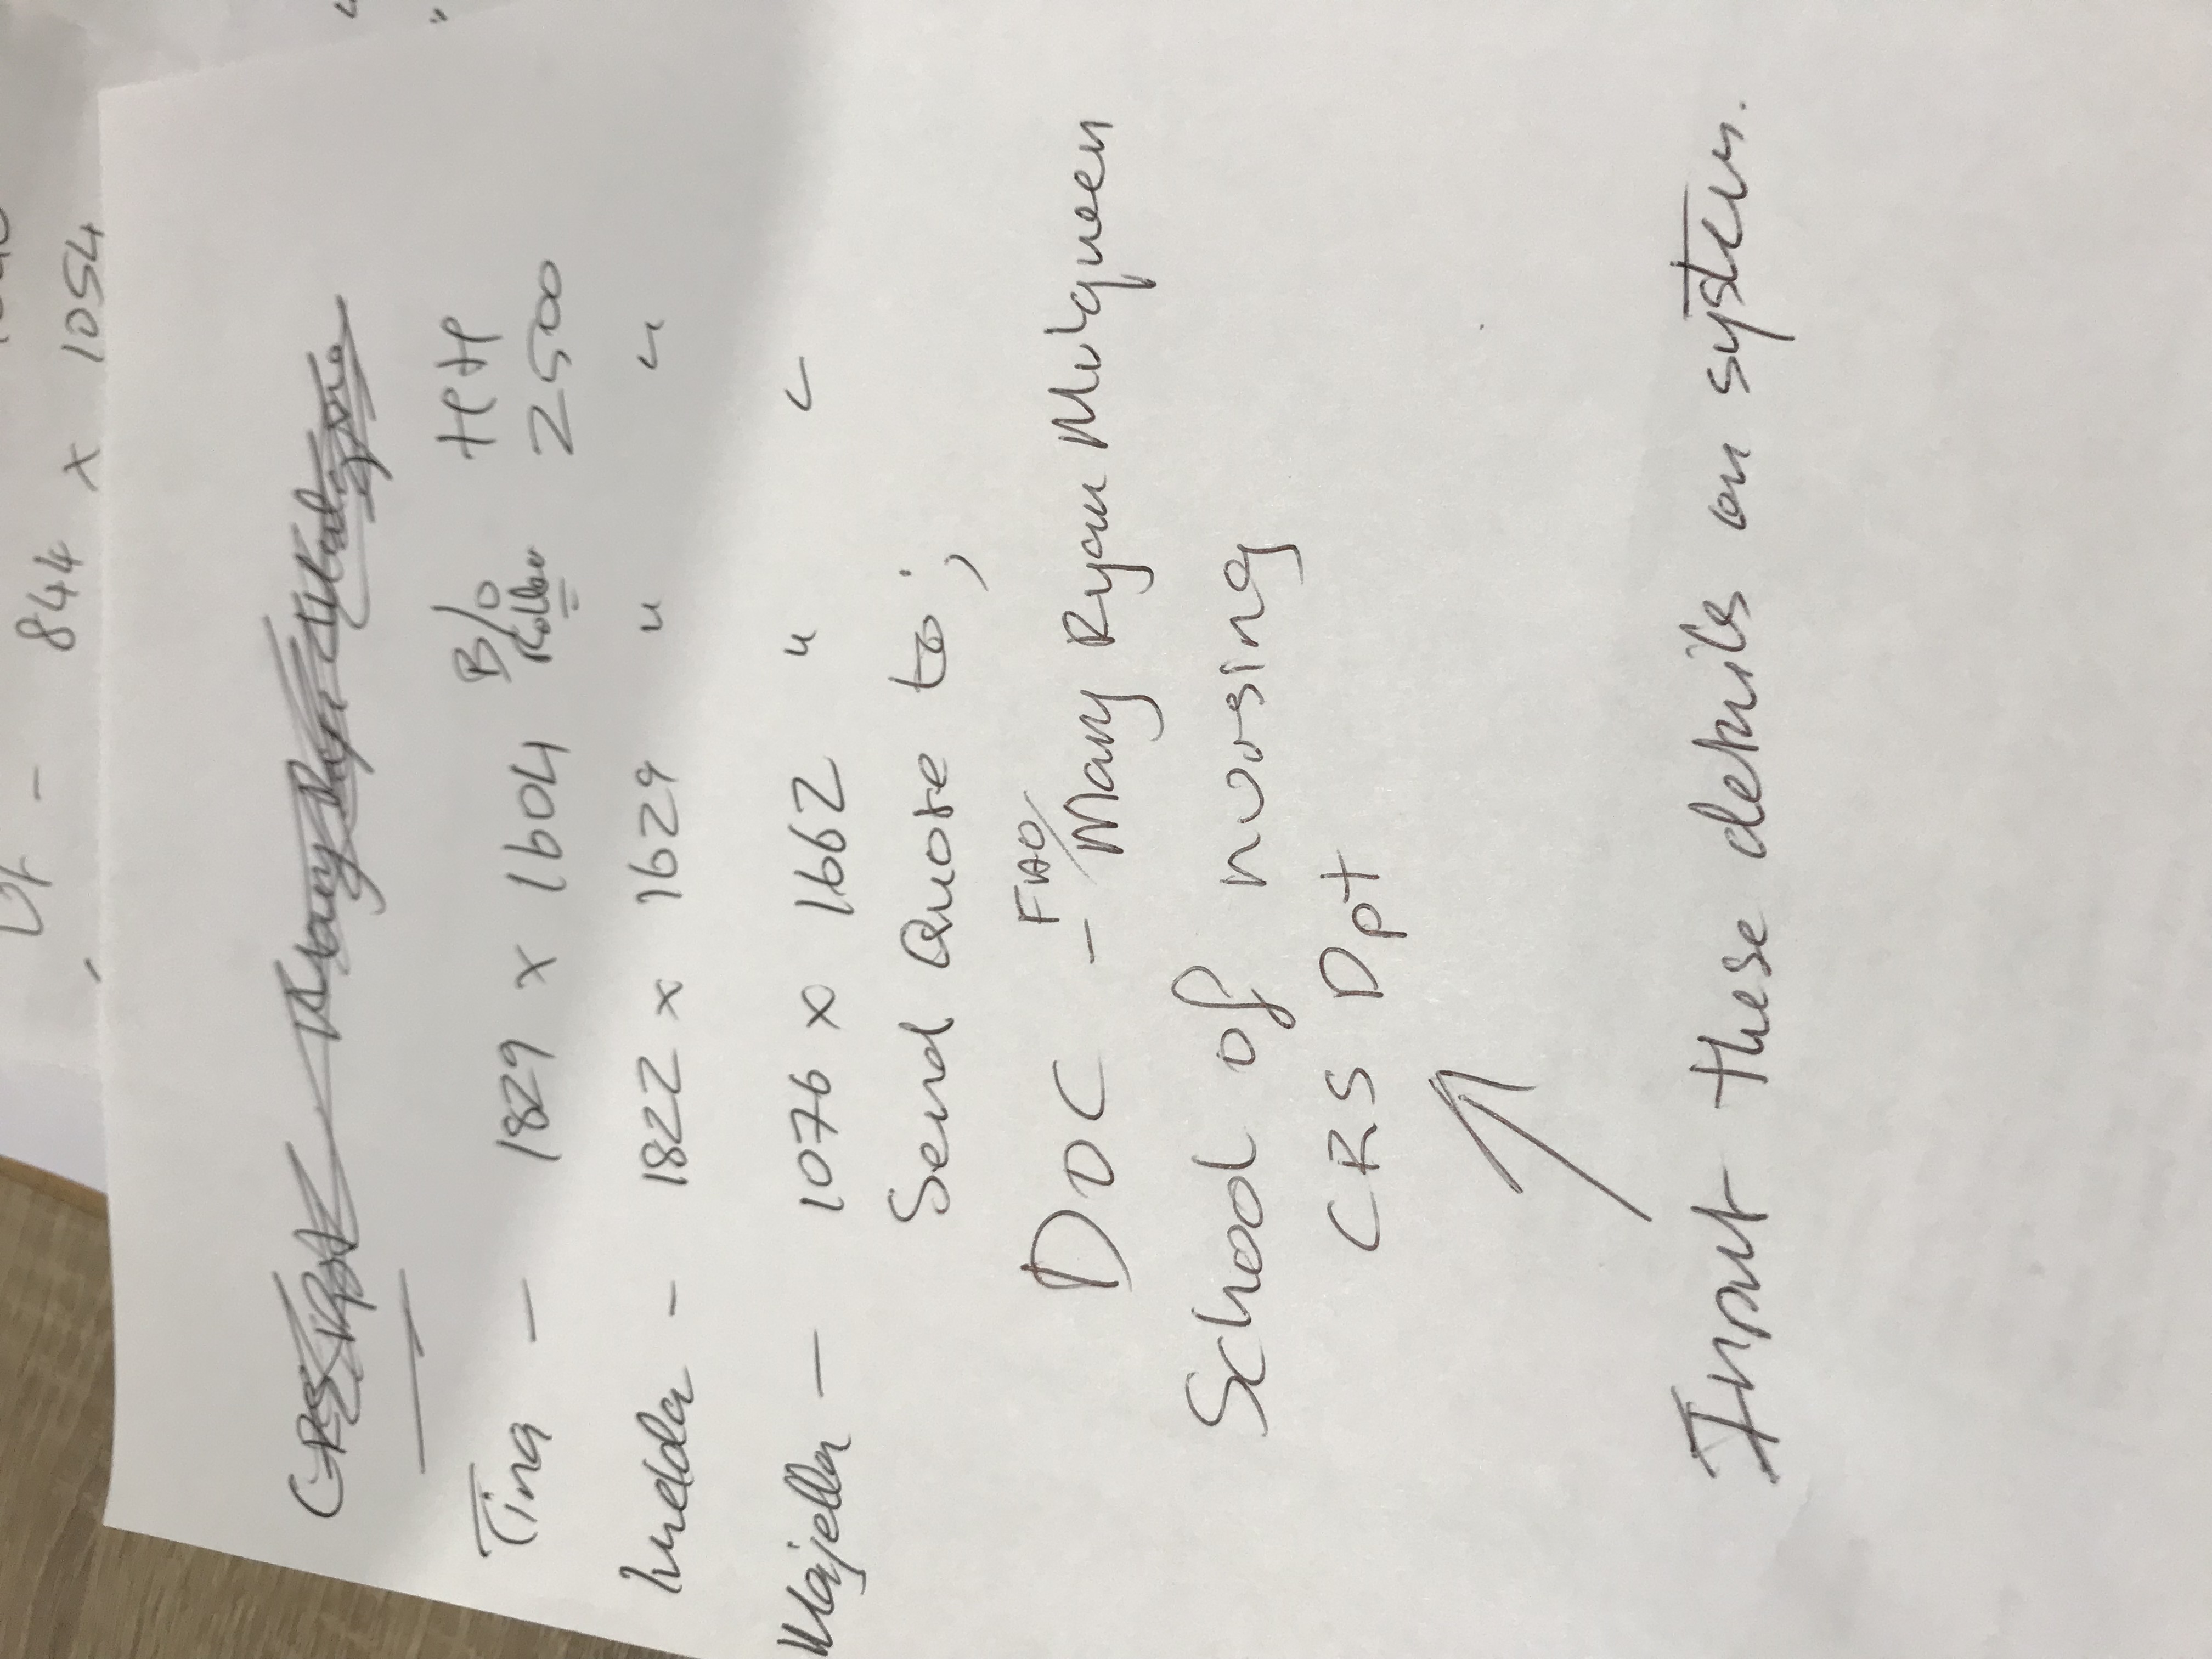 844 x 1054
Tina - 1829 x 1604 B/O Roller HH 2500
Imelda - 1822 x 1629 " "
Majella - 1076 x 1662 " "
Send Quote to;
DOC - FAO/ Mary Ryan Mulqueen
School of nursing
CRS Dpt
Input these details on system.